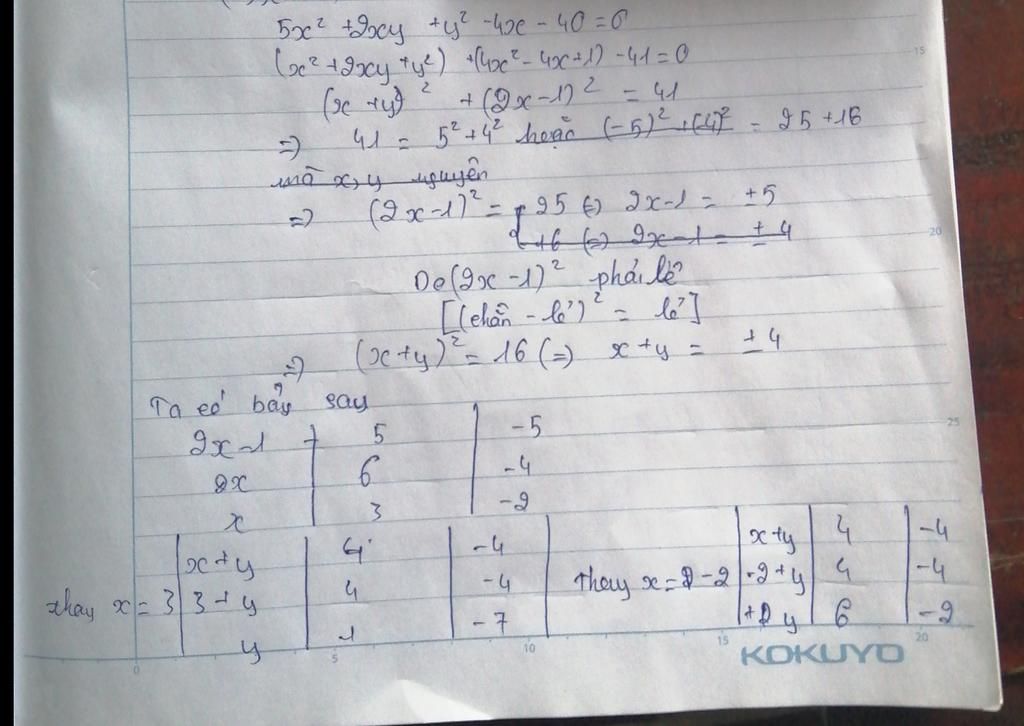 5x² + 2xy + y² - 4x - 40 = 0
(x² + 2xy + y²) + (4x² - 4x + 1) - 41 = 0
(x + y)² + (2x - 1)² = 41
=> 41 = 5² + 4² hoặc (-5)² + (-4)² = 25 + 16
mà x, y nguyên
=> (2x - 1)² = 25 (=) 2x - 1 = ± 5
16 (=) 2x - 1 = ± 4
Do (2x - 1)² phải lẻ
[(chẵn - lẻ)² = lẻ]
=> (x + y)² = 16 (=) x + y = ± 4
Ta có bảy say
2x - 1 5 -5
2x 6 -4
x 3 -2
x + y 4 -4 x + y 4 -4
thay x = 3 3 + y 4 -4 Thay x = -2 -2 + y 4 -4
y 1 -7 y 6 -2
15
20
25
0 5 10 15 20
KOKUYO